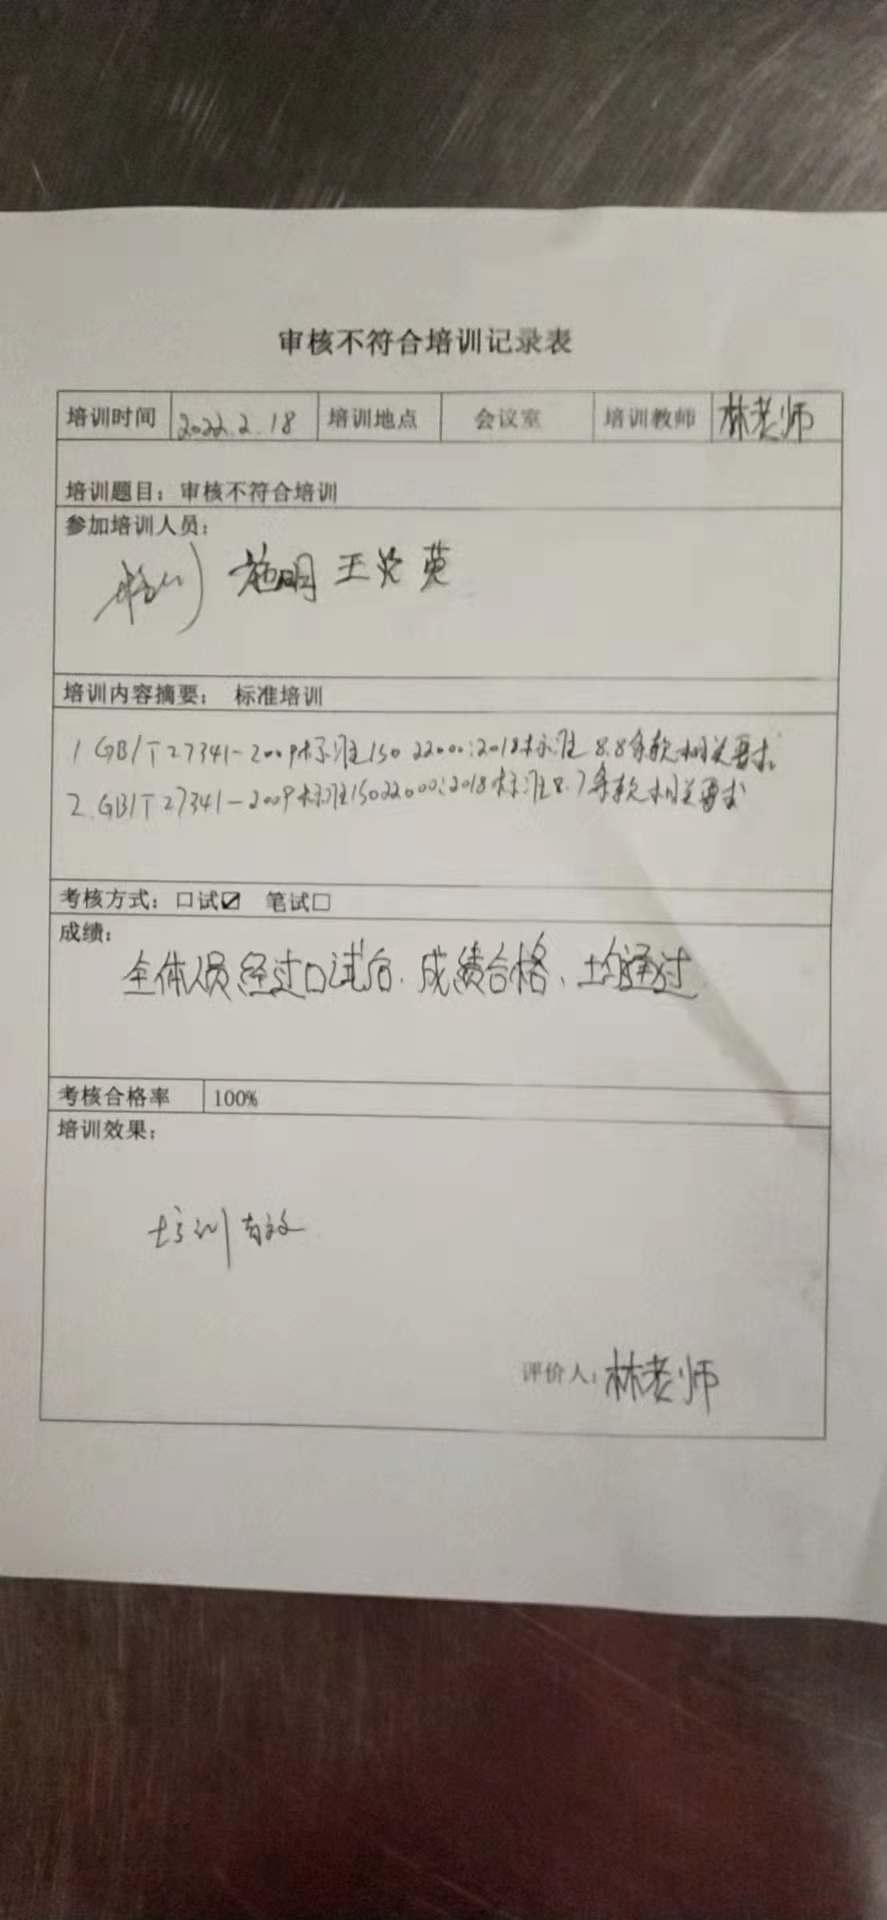 审核不符合培训记录表
培训时间 2022.2.18 培训地点 会议室 培训教师 林老师
培训题目：审核不符合培训
参加培训人员：
施明 王英
培训内容摘要： 标准培训
1 GB/T 27341-2009标准ISO 22000:2018标准 8.8条款相关要求
2.GB/T 27341-2009标准ISO22000:2018标准8.7条款相关要求
考核方式：口试☑ 笔试□
成绩：
全体人员经过口试后.成绩合格、均通过
考核合格率 100%
培训效果：
培训有效
评价人：林老师